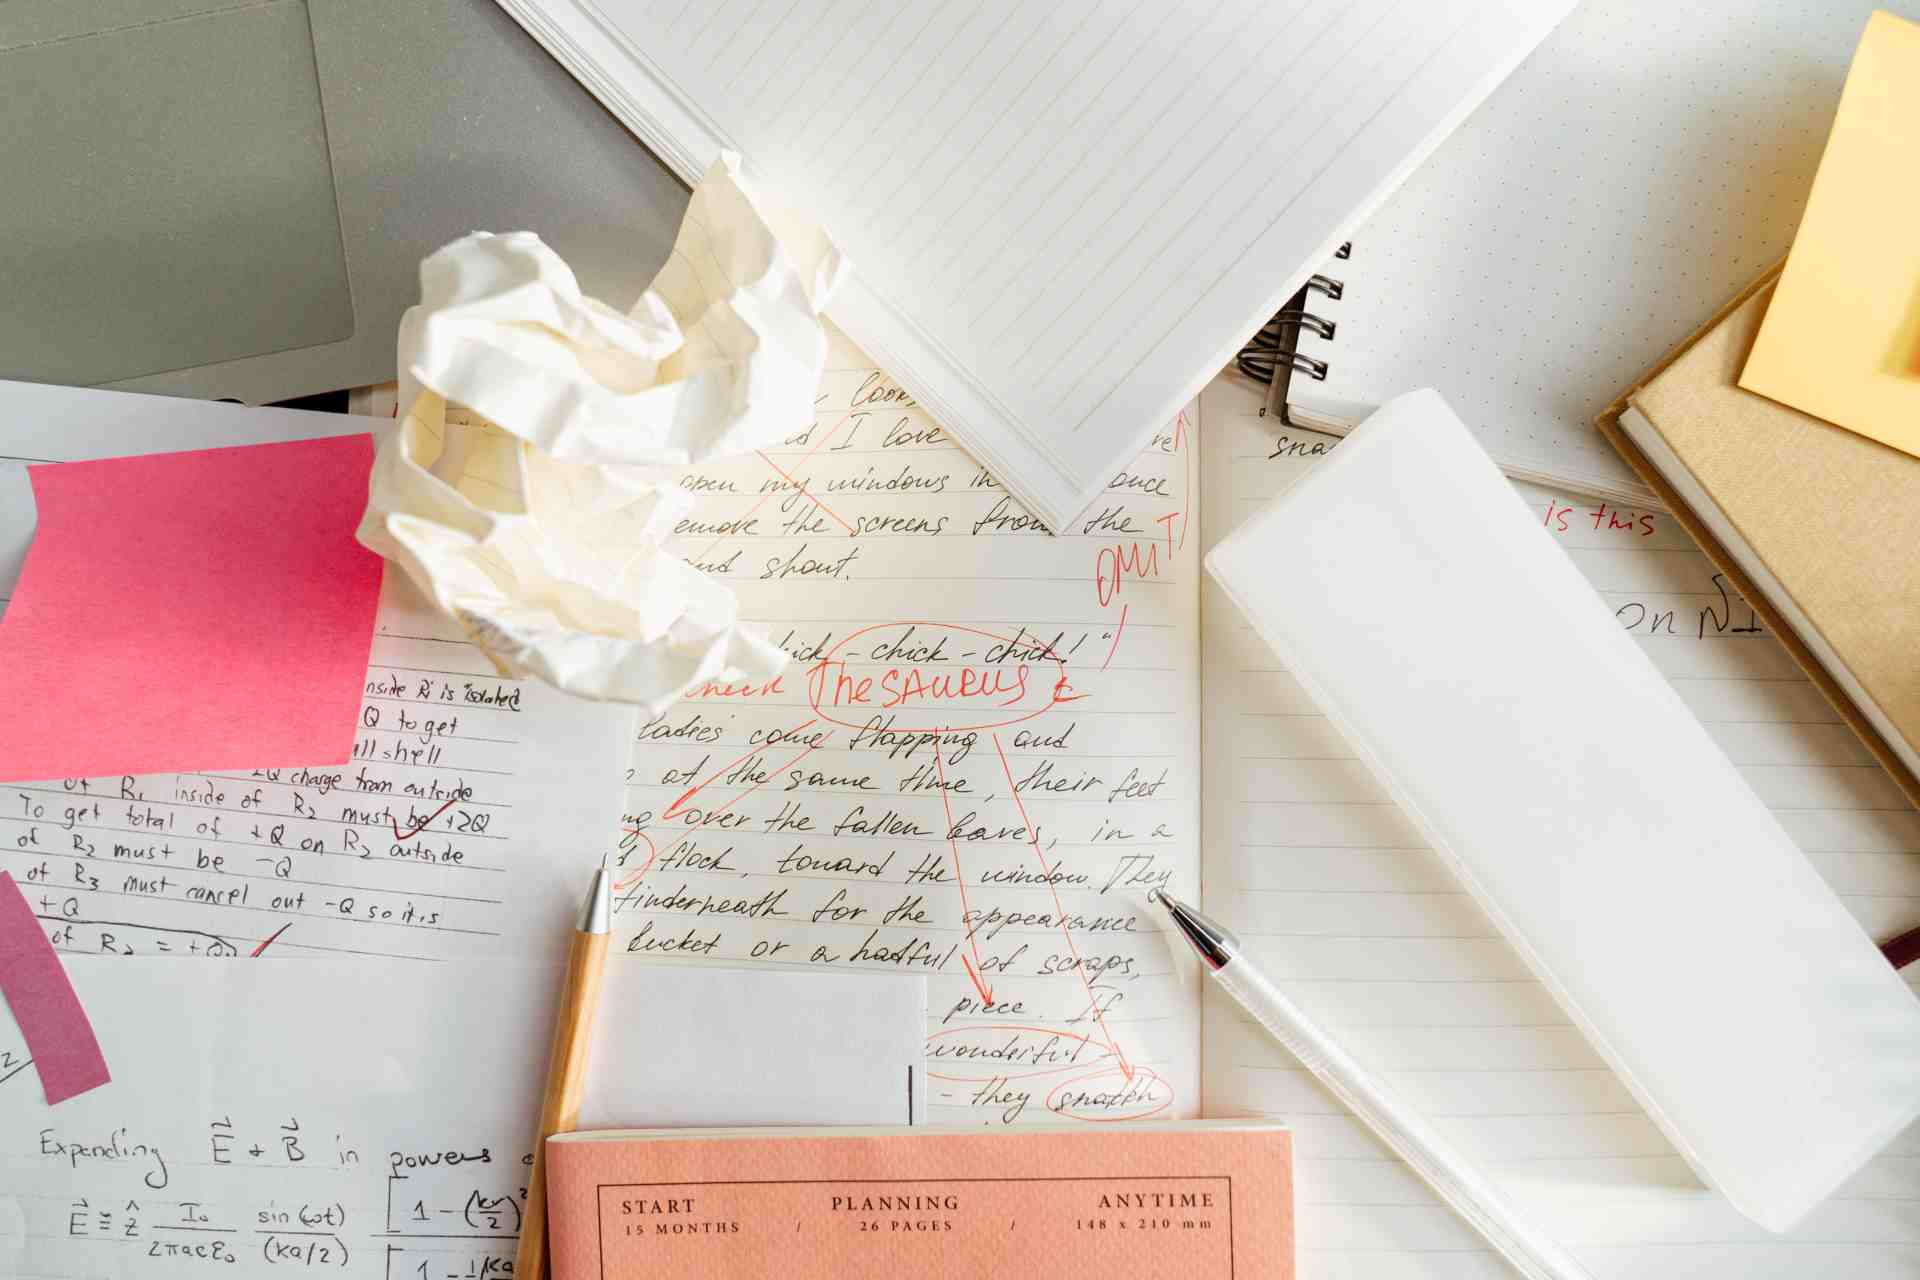 I love
open my windows in
once
the screens from the
and shout.
OMIT
- chick - chick! "
check THESAURUS
ladies come flapping and
at the same time, their feet
over the fallen leaves, in a
flock, toward the window. They
for the appearance
bucket or a hatful of scraps,
piece. If
wonderful -
- they snatch
sna
is this
on
inside Ri is isolated
Q to get
shell
charge from outside
of R1 inside of R2 must be +2Q
To get total of +Q on R2 outside
of R2 must be -Q
of R3 must cancel out -Q so it's
+Q
of R2 = +Q
Expanding E + B in powers
E ≅ ẑ I0 / 2πacε0 sin(ωt) / (ka/2) [1 - (kr/2)²
START PLANNING ANYTIME
15 MONTHS / 26 PAGES / 148 x 210 mm